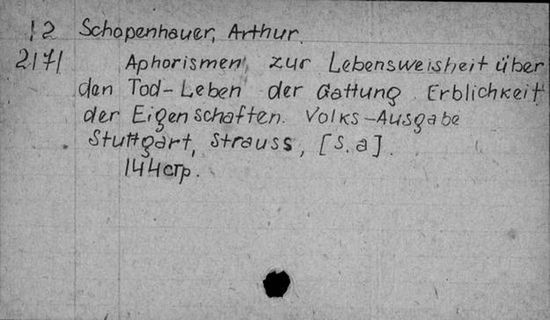 12 Schopenhauer, Arthur.
2171 Aphorismen zur Lebensweisheit über
den Tod-Leben der Gattung Erblichkeit
der Eigenschaften. Volks-Ausgabe
Stuttgart, Strauss, [S.a].
144стр.